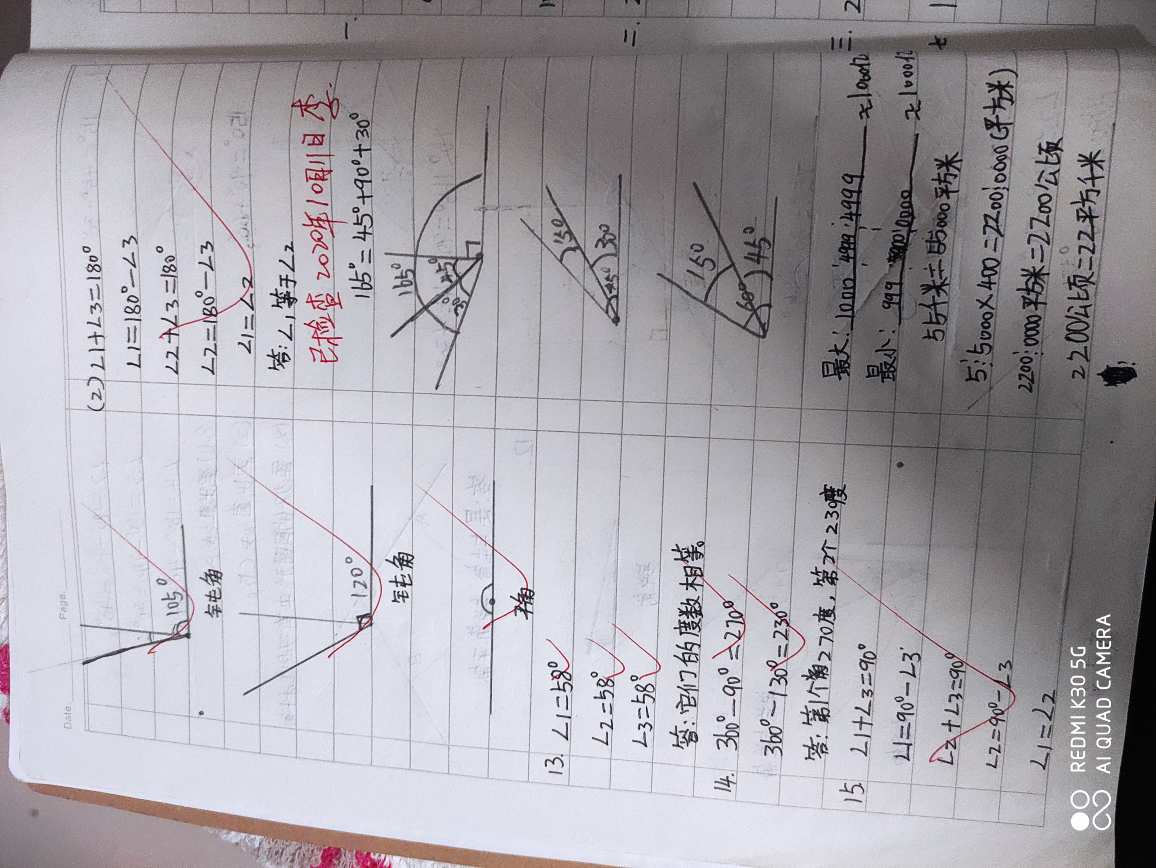 Date.
Page.
105°
钝角
120°
钝角
平角
13. ∠1=58°
∠2=58°
∠3=58°
答:它们的度数相等。
14. 360°-90°=270°
360°-130°=230°
答:第个角270度,第2个230度
15. ∠1+∠3=90°
∠1=90°-∠3
∠2+∠3=90°
∠2=90°-∠3
∠1=∠2
(2)∠1+∠3=180°
∠1=180°-∠3
∠2+∠3=180°
∠2=180°-∠3
∠1=∠2
答:∠1等于∠2
已检查 2020年10月11日 李
165°=45°+90°+30°
165°
45°
30°
15°
45° 30°
15°
60° 45°
最大:1000 4999 ≈1000亿
最小: 999 ≈1000亿
55千米=55000平方米
5:5000×400=2200:0000(平方米)
2200:0000平方米=2200公顷
2200公顷=22平方千米
一.
二.
三.
七
REDMI K30 5G
AI QUAD CAMERA